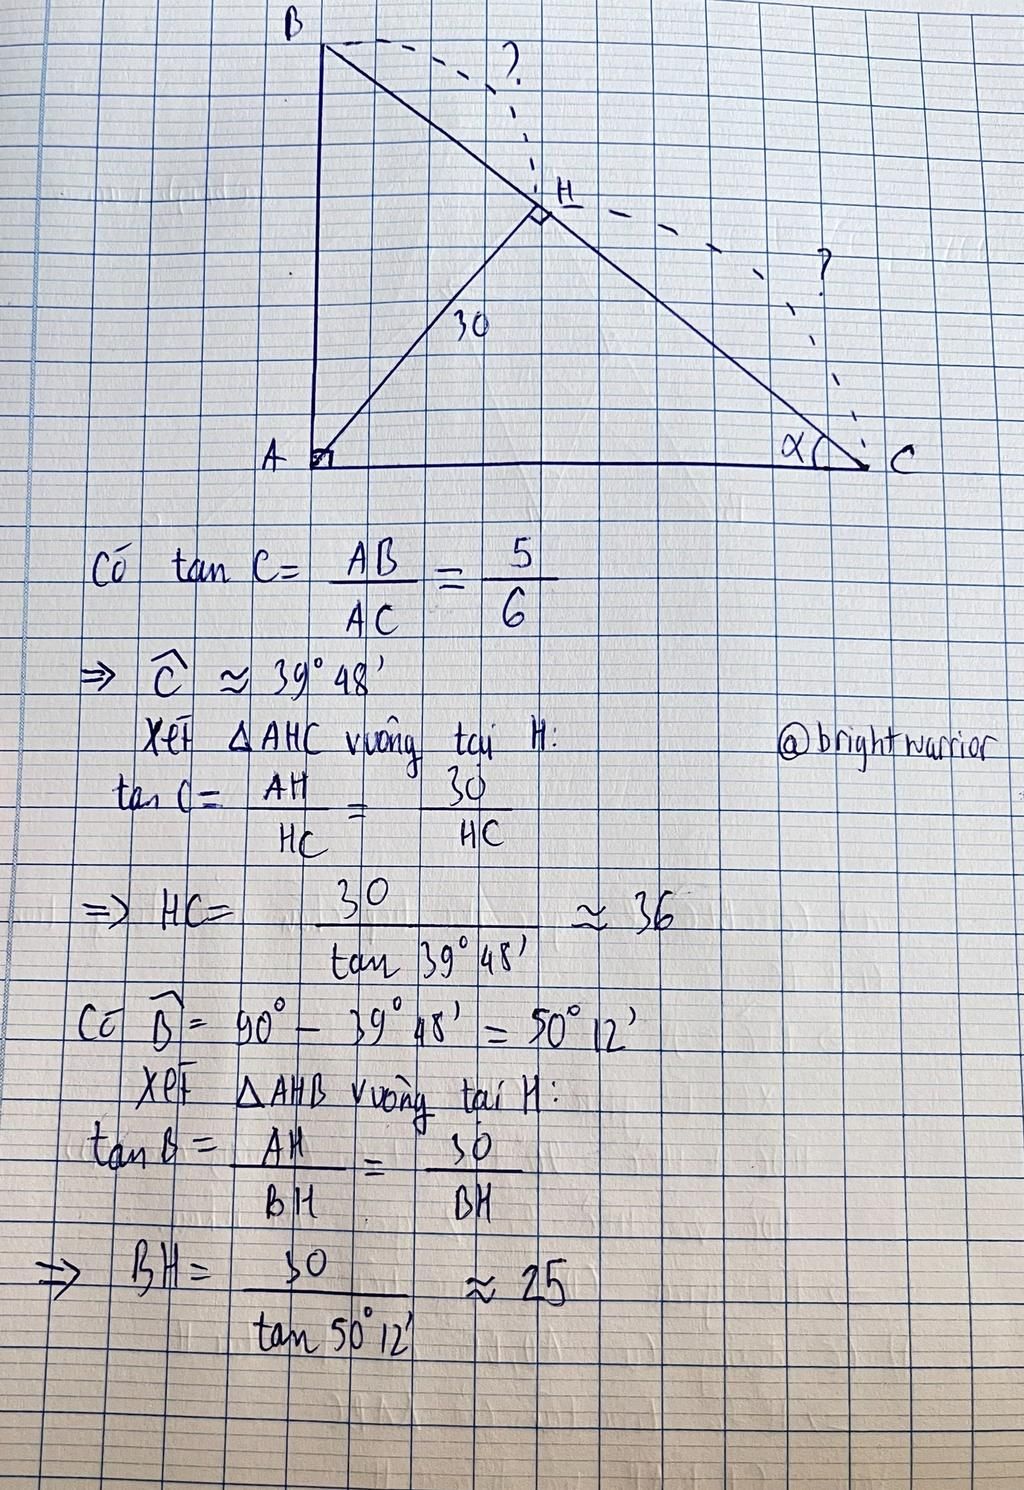 B
?
H
?
30
A
α
C
Có tan C = AB/AC = 5/6
⇒ Ĉ ≈ 39°48'
Xét ΔAHC vuông tại H:
@brightwarrior
tan C = AH/HC = 30/HC
⇒ HC = 30/tan 39°48' ≈ 36
Có B̂ = 90° - 39°48' = 50°12'
Xét ΔAHB vuông tại H:
tan B = AH/BH = 30/BH
⇒ BH = 30/tan 50°12' ≈ 25